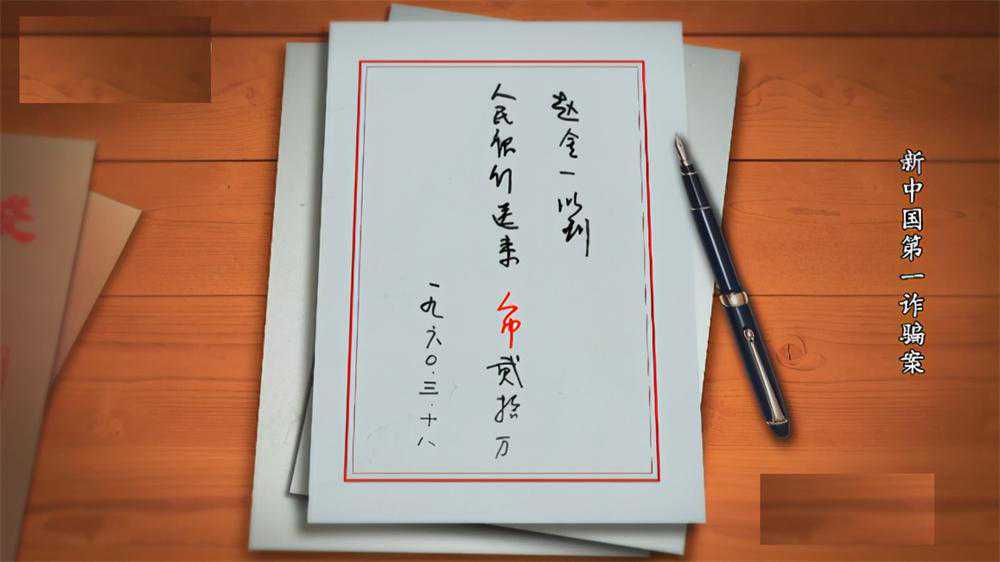 新中国第一诈骗案
赵全一收到
人民银行送来 币 贰拾万
一九六〇·三·十八